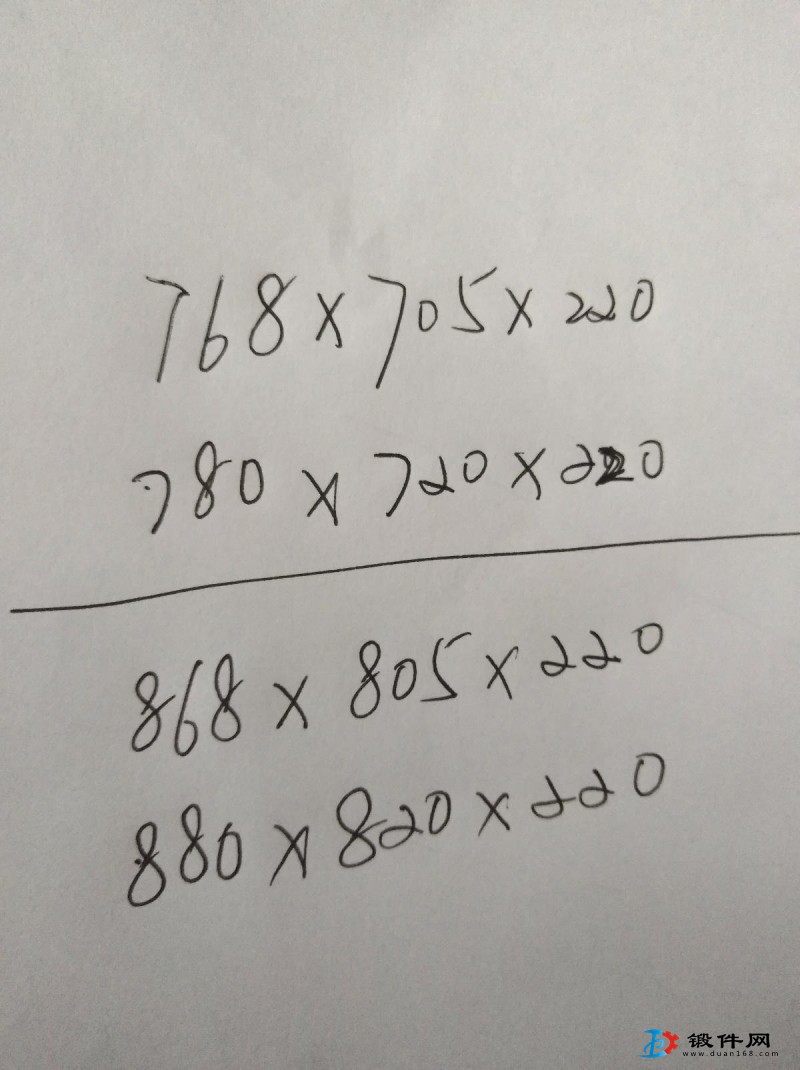 768×705×220
780×720×220
868×805×220
880×820×220
锻件网
www.duan168.com